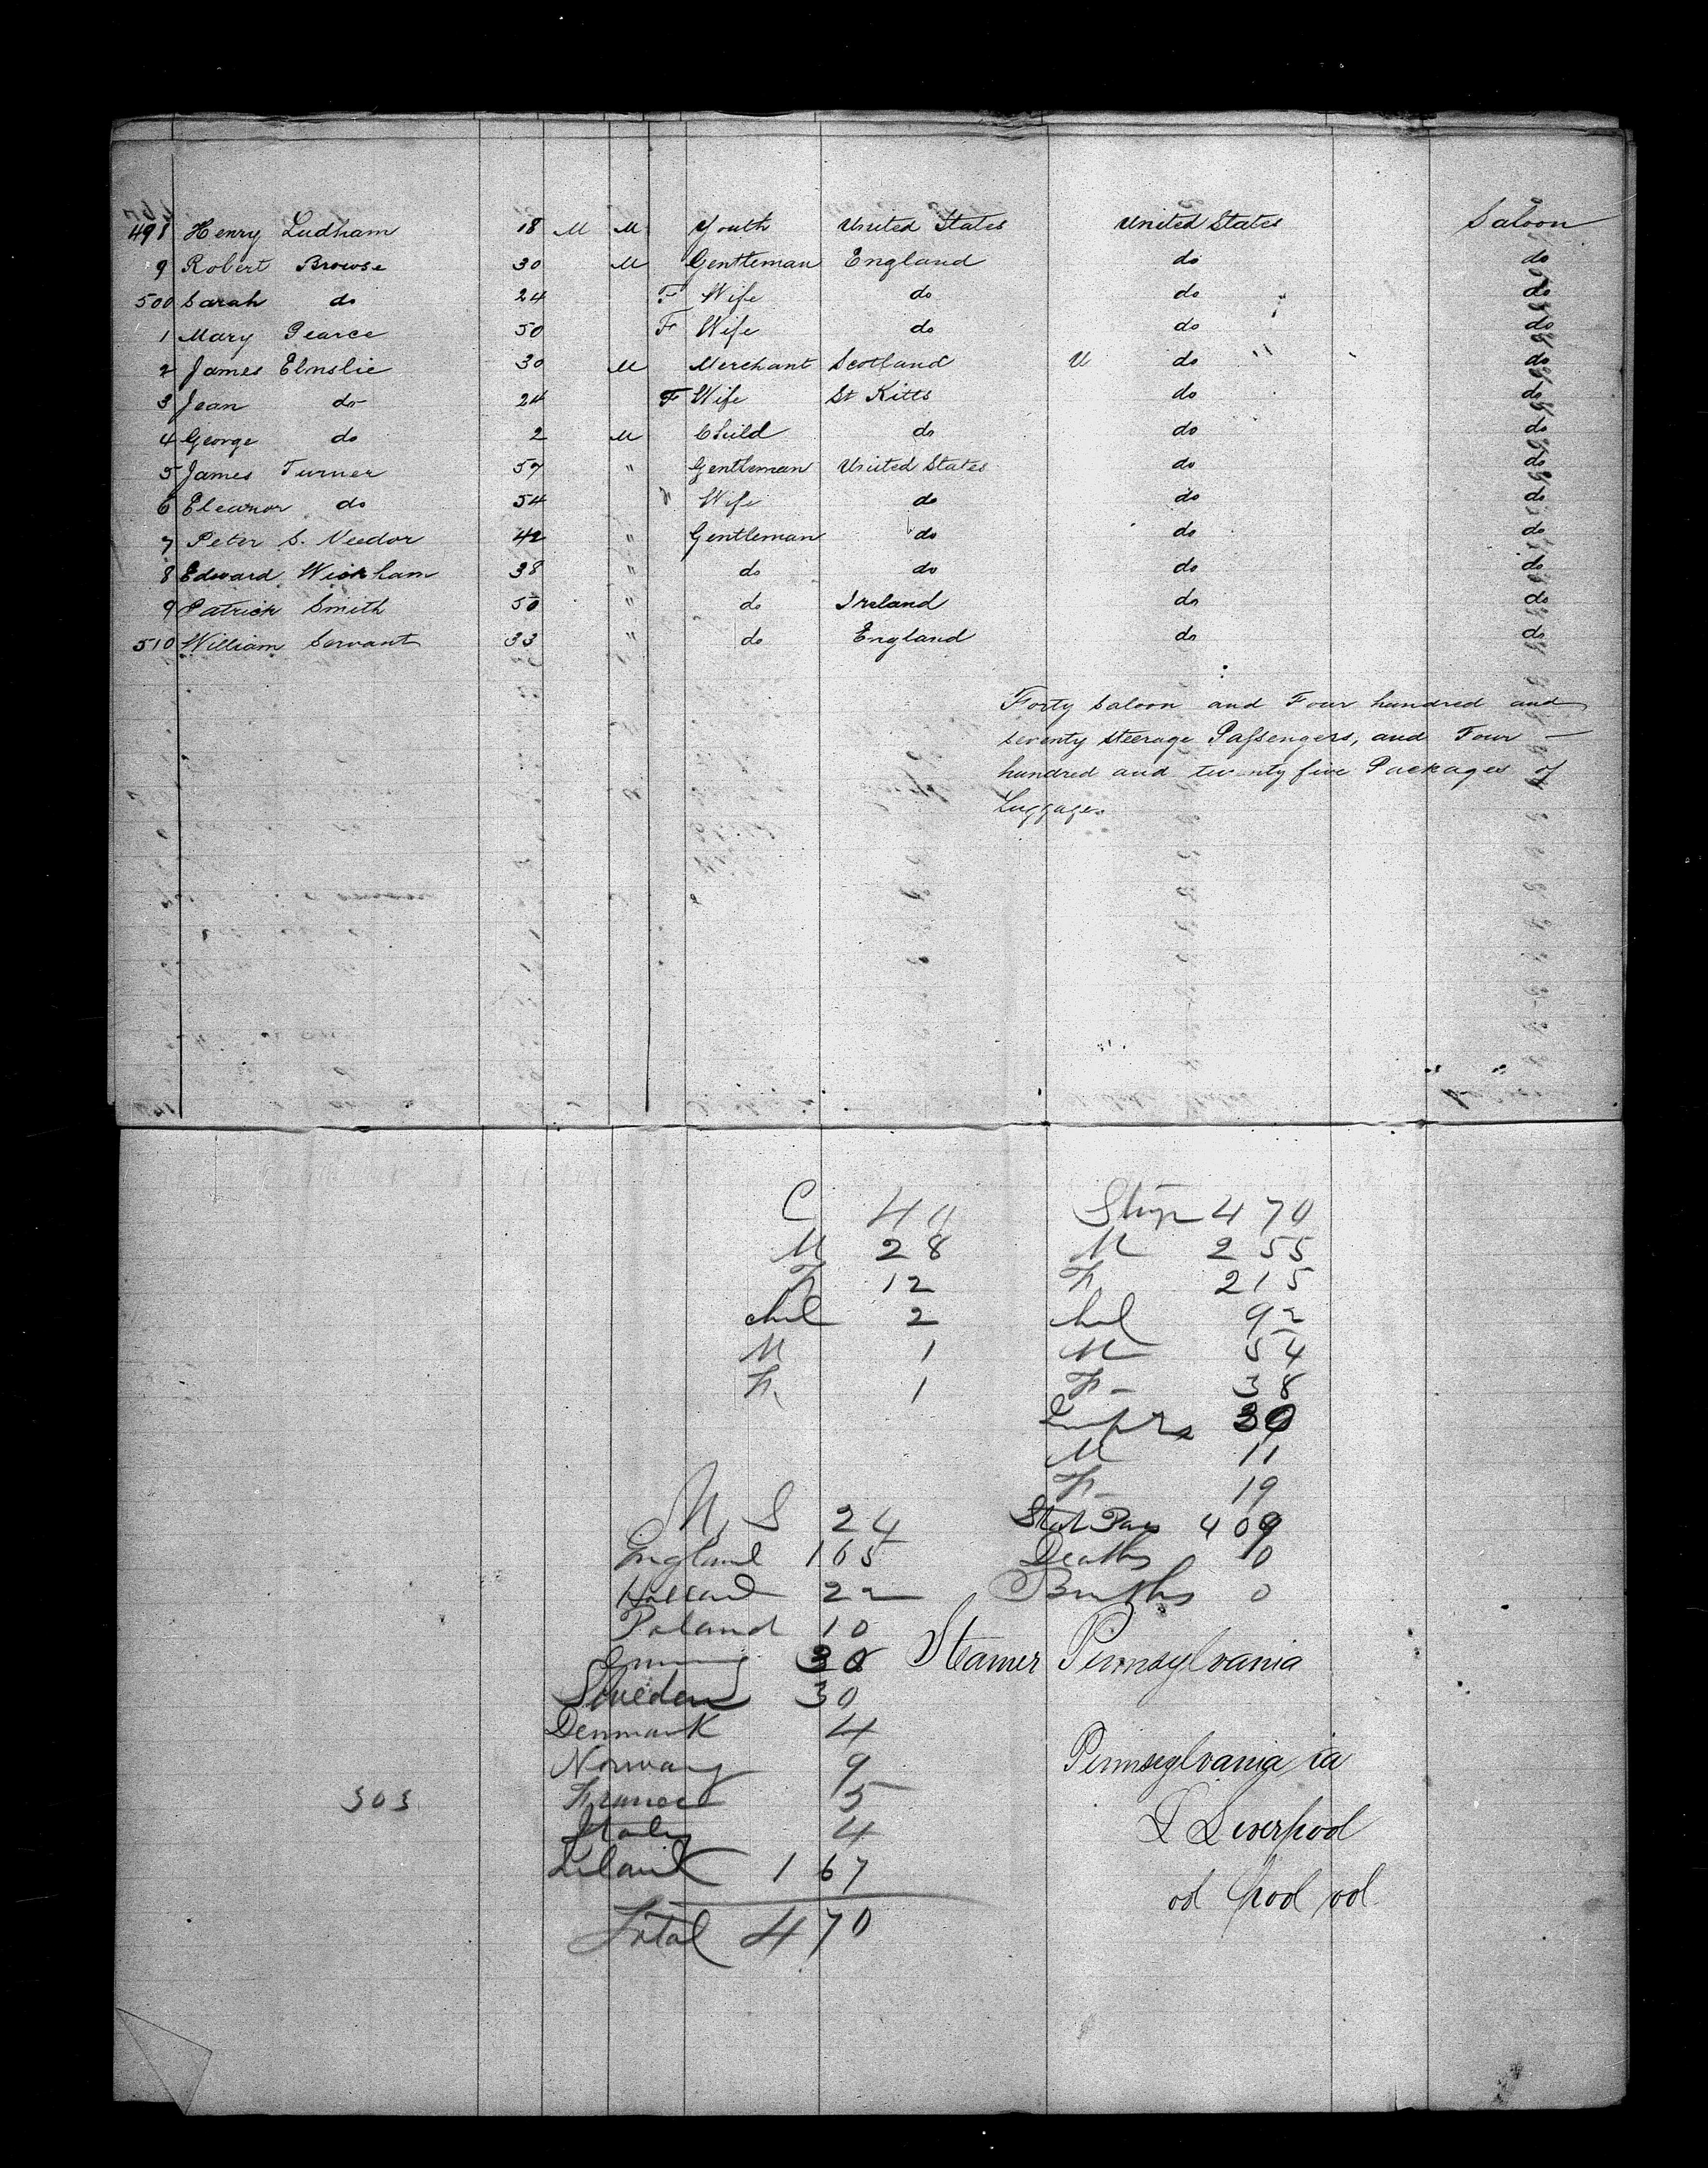 498 Henry Ludham 18 M M Youth United States United States Saloon
9 Robert Browse 30 M Gentleman England do do
500 Sarah do 24 F Wife do do do
1 Mary Pearce 50 F Wife do do do
2 James Elmslie 30 M Merchant Scotland U do do
3 Jean do 24 F Wife St Kitts do do
4 George do 2 M Child do do do
5 James Turner 57 " Gentleman United States do do
6 Eleanor do 54 " Wife do do do
7 Peter S. Veedor 42 " Gentleman do do do
8 Edward Wickham 38 " do do do do
9 Patrick Smith 50 " do Ireland do do
510 William Servant 33 " do England do do
Forty Saloon and Four hundred and
seventy steerage Passengers, and Four
hundred and twenty five Packages of
Luggage.
C 40 470
M 28 M 255
F 12 F 215
chil 2 chil 92
M 1 M 54
F 1 F 38
30
M 11
F 19
U, S 24 409
England 165 Deaths 0
Holland 22 Births 0
Poland 10
30 Steamer Pennsylvania
Sweden 30
Denmark 4
Norway 9 Pennsylvania ia
France 5
303
Italy 4 L Liverpool
Ireland 167
od pool ool
Total 470